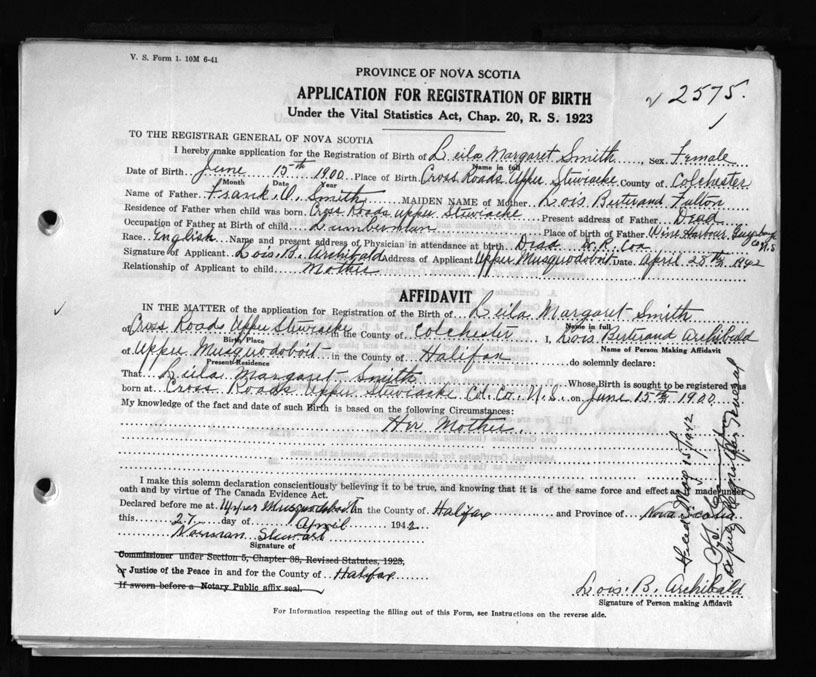 V. S. Form 1. 10M 6-41
PROVINCE OF NOVA SCOTIA
APPLICATION FOR REGISTRATION OF BIRTH
Under the Vital Statistics Act, Chap. 20, R. S. 1923
√ 2575.
TO THE REGISTRAR GENERAL OF NOVA SCOTIA
I hereby make application for the Registration of Birth of Leila Margaret Smith, Sex Female
Name in full
Date of Birth June 15th 1900 Place of Birth Cross Roads Upper Stewiacke County of Colchester
Month Date Year
Name of Father Frank O. Smith MAIDEN NAME of Mother Lois Bertrand Fulton
Residence of Father when child was born Cross Roads Upper Stewiacke Present address of Father Dead
Occupation of Father at Birth of child Lumberman Place of birth of Father Wine Harbour, Guysboro Co N.S
Race English Name and present address of Physician in attendance at birth Dead W. R. Cox
Signature of Applicant Lois. B. Archibald Address of Applicant Upper Musquodoboit Date April 28th 1942
Relationship of Applicant to child Mother
AFFIDAVIT
IN THE MATTER of the application for Registration of the Birth of Leila Margaret Smith
Name in full
of Cross Roads Upper Stewiacke in the County of Colchester I, Lois Bertrand Archibald
Birth Place Name of Person Making Affidavit
of Upper Musquodoboit in the County of Halifax do solemnly declare:
Present Residence
That Leila Margaret Smyth Whose Birth is sought to be registered was
born at Cross Roads Upper Stewiacke Col. Co. N.S. on June 15th 1900
My knowledge of the fact and date of such Birth is based on the following Circumstances:
Her Mother.
I make this solemn declaration conscientiously believing it to be true, and knowing that it is of the same force and effect as if made under
oath and by virtue of The Canada Evidence Act.
Declared before me at Upper Musquodoboit in the County of Halifax and Province of Nova Scotia
this 27 day of April 1942
Norman Stewart
Signature of
Commissioner under Section 5, Chapter 38, Revised Statutes, 1923,
or Justice of the Peace in and for the County of Halifax
If sworn before a Notary Public affix seal.
Lois. B. Archibald
Signature of Person making Affidavit
For Information respecting the filling out of this Form, see Instructions on the reverse side.
May 15/1942
Deputy Registrar General